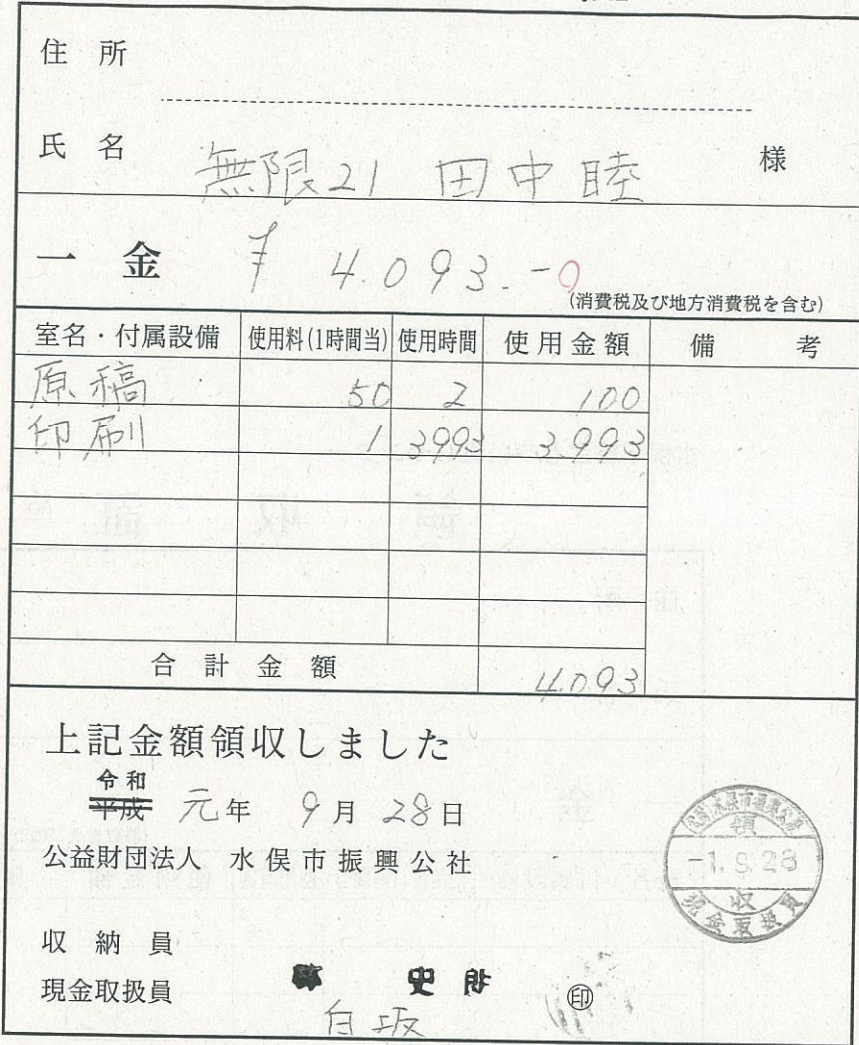 住所
氏名 無限21 田中睦 様
一金 ¥ 4.093.-
(消費税及び地方消費税を含む)
室名・付属設備 使用料(1時間当) 使用時間 使用金額 備考
原稿 50 2 100
印刷 1 3993 3.993
合計金額 4.093
上記金額領収しました
令和
平成 元年 9月 28日
公益財団法人 水俣市振興公社
領
-1.9.28
収
現金取扱員
収納員
現金取扱員
白坂
印